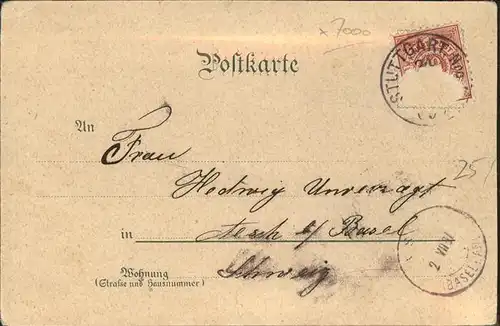 x 7000
STUTTGART No 9
Postkarte
An
Frau
25
Hedwig Unverzagt
in Aesch b/ Basel
2 VII
BASEL
Schweiz
Wohnung
(Straße und Hausnummer)